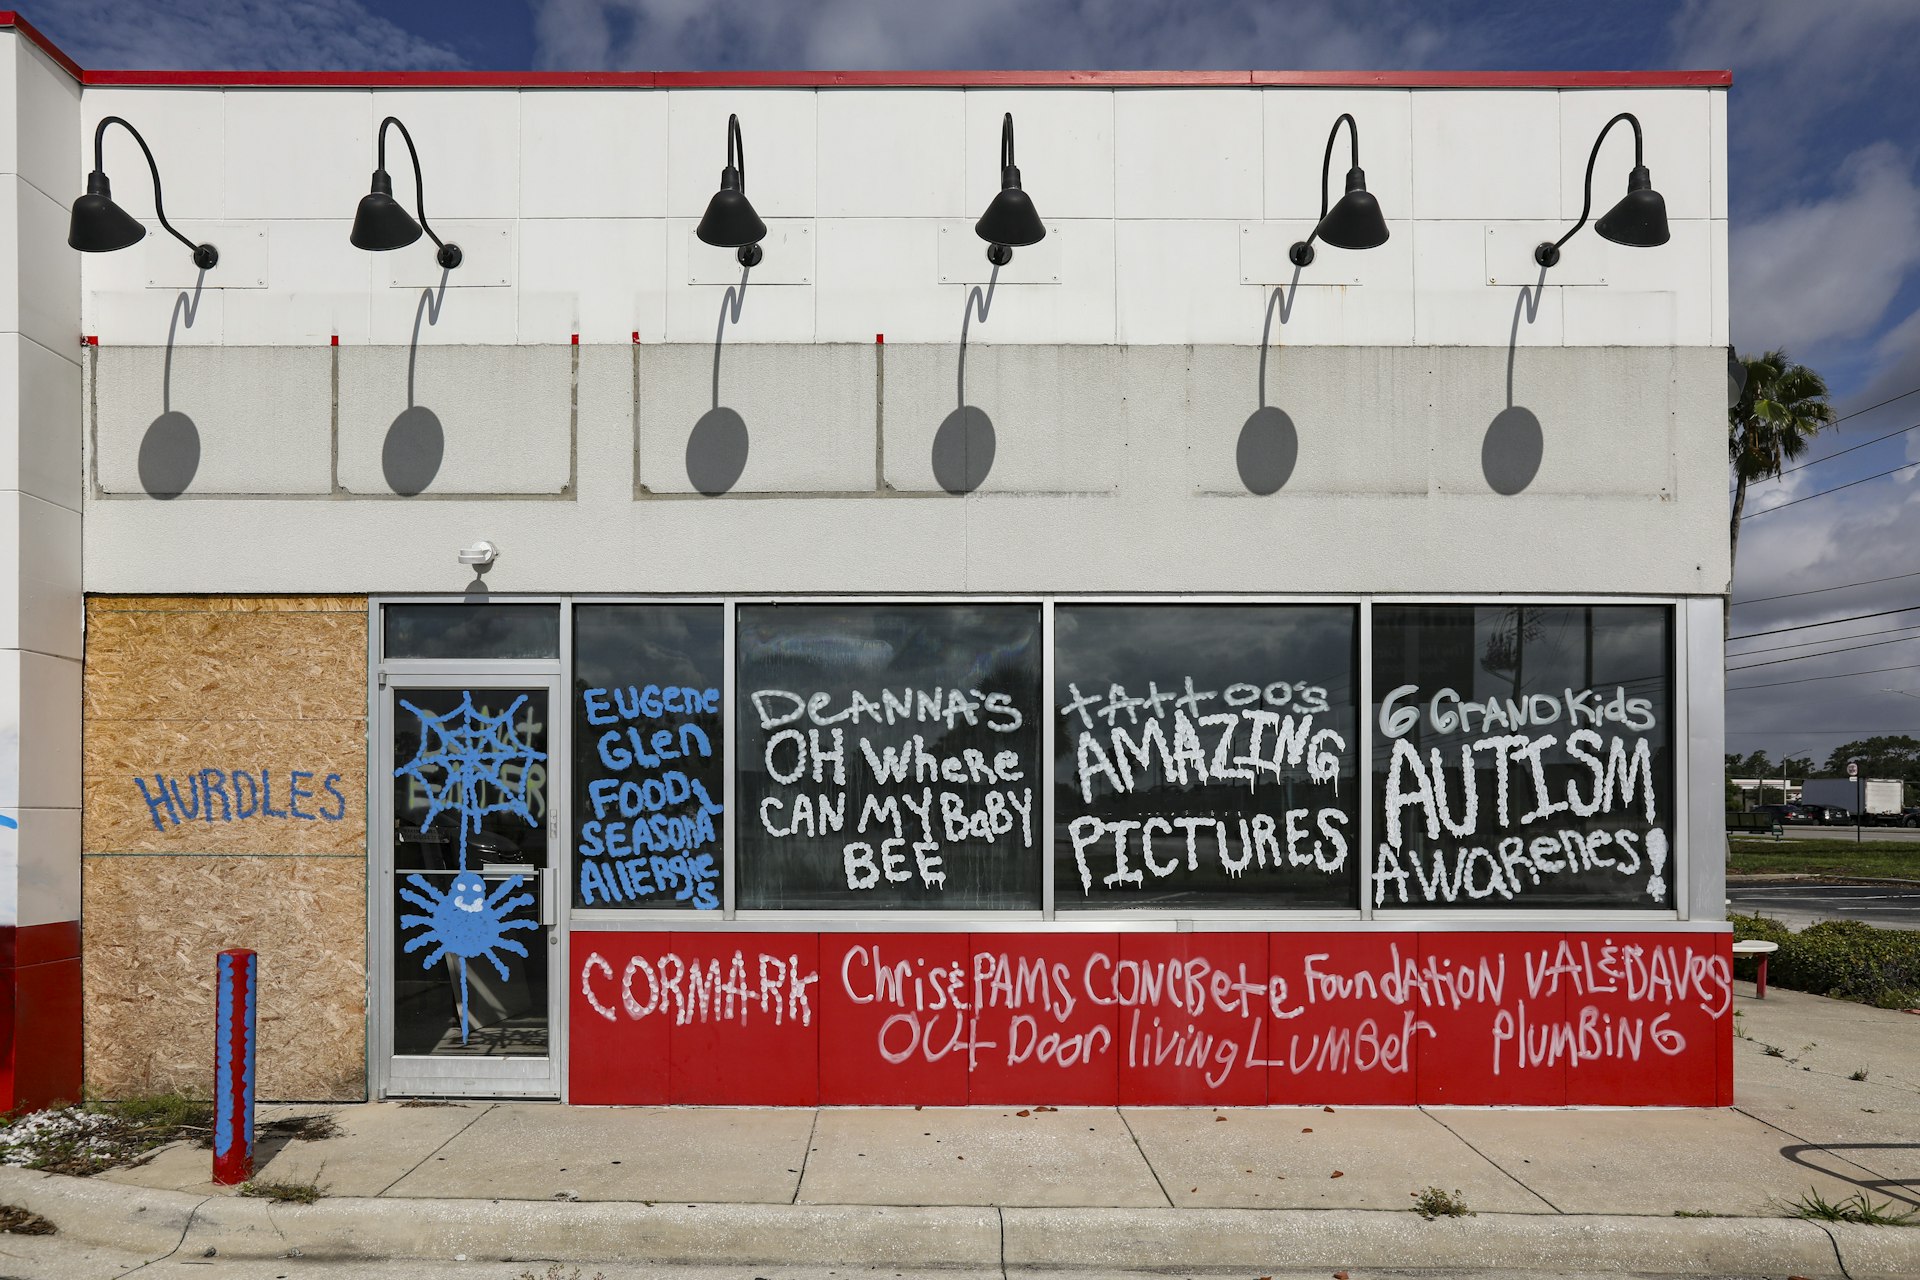 HURDLES
Don't
ENTER
EUGene
GLen
FOOD
SEASONA
AllERgie
s
DeANNA'S
OH WHeRe
CAN MY BaBY
BEE
tAttoo's
AMAZING
PICTURES
6 GrANDKids
AUTISM
AWARenes!
CORMARK
Chris & PAMS CONCRete Foundation VAL & DAVes
OUt Door living LUMBer PlUMBiNG